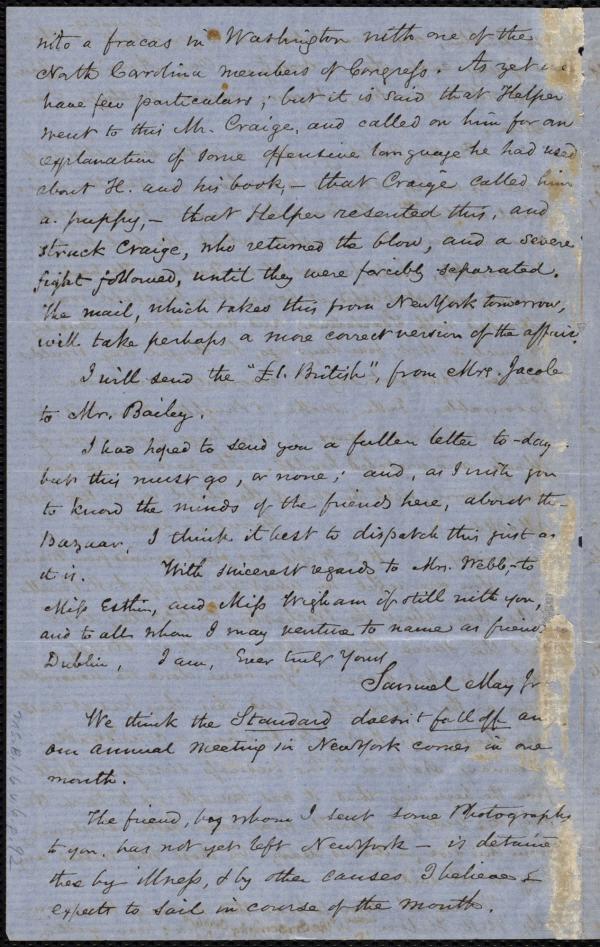 into a fracas in Washington with one of the
North Carolina members of Congress. As yet we
have few particulars; but it is said that Helper
went to this Mr. Craige, and called on him for an
explanation of some offensive language he had used
about H. and his book, – that Craige called him
a puppy, – that Helper resented this, and
struck Craige, who returned the blow, and a severe
fight followed, until they were forcibly separated.
The mail, which takes this from New York tomorrow,
will take perhaps a more correct version of the affair.
I will send the "£1. British", from Mrs. Jacob
to Mr. Bailey.
I had hoped to send you a fuller letter to-day
but this must go, or none; and, as I wish you
to know the minds of the friends here, about the
Bazaar, I think it best to dispatch this just as
it is. With sincerest regards to Mrs. Webb, – to
Miss Esther, and Miss Wigham if still with you,
and to all whom I may venture to name as friends
Dublin, I am, Ever truly Yours
Samuel May Jr.
We think the Standard doesn't fall off an
our annual meeting in New York comes in one
month.
The friend, by whom I sent some Photographs
to you, has not yet left New York – is detained
there by illness, & by other causes I believe &
expects to sail in course of the month.